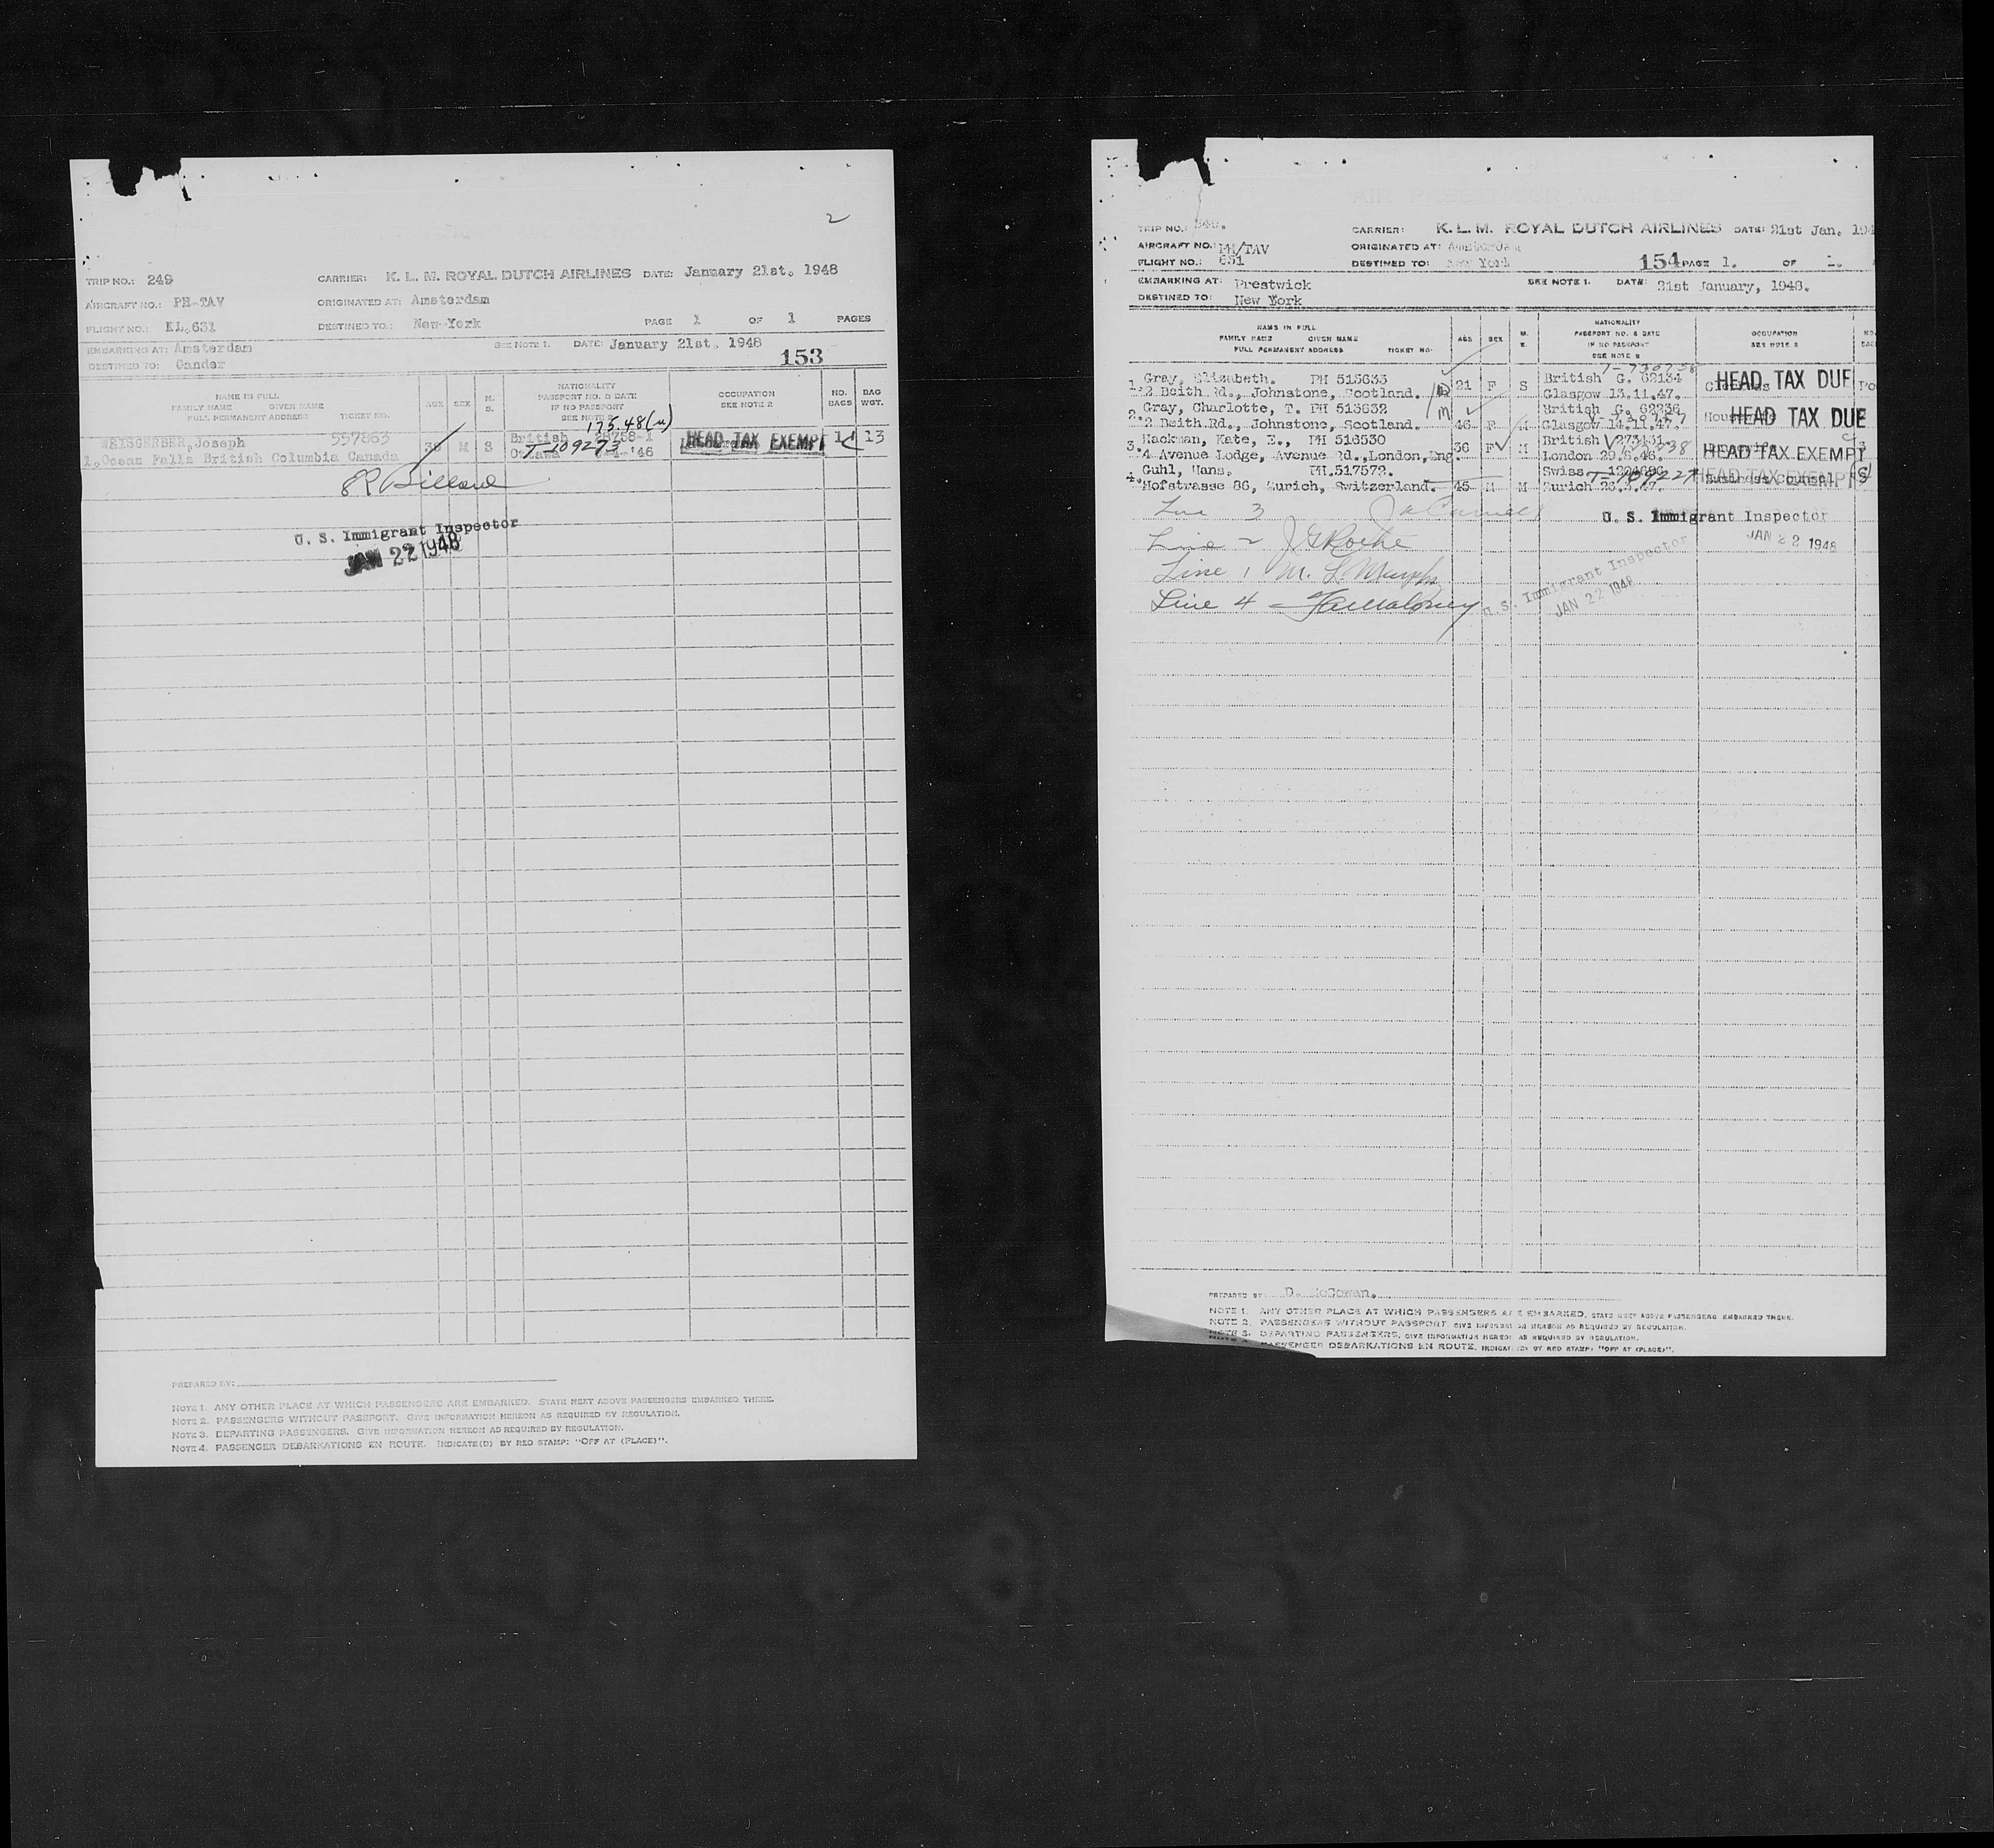 2
TRIP NO.: 249
CARRIER: K. L. M. ROYAL DUTCH AIRLINES DATE: January 21st. 1948
AIRCRAFT NO.: PH-TAV
ORIGINATED AT: Amsterdam
FLIGHT NO.: KL.631
DESTINED TO.: New-York
PAGE 1 OF 1 PAGES
EMBARKING AT: Amsterdam
SEE NOTE 1. DATE: January 21st. 1948
153
DESTINED TO: Gander
NAME IN FULL
FAMILY NAME GIVEN NAME
FULL PERMANENT ADDRESS TICKET NO.
AGE SEX M. S.
NATIONALITY
PASSPORT NO. & DATE
IF NO PASSPORT
SEE NOTE 2
OCCUPATION
SEE NOTE 2
NO. BAGS
BAG WGT.
175.48(u)
WEISGERBER, Joseph 557863 M S British 28758-1 HEAD TAX EXEMPT 1 13
1. Ocean Falls British Columbia Canada Ottawa T-109273 '46
U. S. Immigrant Inspector
JAN 22 1948
PREPARED BY:
NOTE 1. ANY OTHER PLACE AT WHICH PASSENGERS ARE EMBARKED. STATE NEXT ABOVE PASSENGERS EMBARKED THERE.
NOTE 2. PASSENGERS WITHOUT PASSPORT. GIVE INFORMATION HEREON AS REQUIRED BY REGULATION.
NOTE 3. DEPARTING PASSENGERS. GIVE INFORMATION HEREON AS REQUIRED BY REGULATION.
NOTE 4. PASSENGER DEBARKATIONS EN ROUTE. INDICATE(D) BY RED STAMP: "OFF AT (PLACE)".
TRIP NO.:
CARRIER: K. L. M. ROYAL DUTCH AIRLINES DATE: 21st Jan. 194
AIRCRAFT NO.: PH/TAV
ORIGINATED AT: Amsterdam
FLIGHT NO.: 631
DESTINED TO: New York
154 PAGE 1. OF 1.
EMBARKING AT: Prestwick
SEE NOTE 1. DATE: 21st January, 1948.
DESTINED TO: New York
NAME IN FULL
FAMILY NAME GIVEN NAME
FULL PERMANENT ADDRESS TICKET NO.
AGE SEX M. S.
NATIONALITY
PASSPORT NO. & DATE
IF NO PASSPORT
SEE NOTE 2
OCCUPATION
SEE NOTE 2
Gray, Elizabeth. PH 513633 21 F S British G. 62134 HEAD TAX DUE
1. 2 Beith Rd., Johnstone, Scotland. Glasgow 13.11.47.
Gray, Charlotte, T. PH 513632 British G. 62236 HEAD TAX DUE
2. 2 Beith Rd., Johnstone, Scotland. 46 F M Glasgow 14.11.47.
Hackman, Kate, E., PH 516530 36 F M British HEAD TAX EXEMPT
3. 4 Avenue Lodge, Avenue Rd., London, Eng. London 29.8.46.
Guhl, Hans. PH.517572. Swiss HEAD TAX EXEMPT
4. Hofstrasse 86, Zurich, Switzerland. 45 M M Zurich Business Counsel
Line 3
U. S. Immigrant Inspector
JAN 22 1948
Line 2 J G Roche
Line 1 M. L. Murphy
Line 4
U. S. Immigrant Inspector
JAN 22 1948
PREPARED BY: D. McGowan.
NOTE 1. ANY OTHER PLACE AT WHICH PASSENGERS ARE EMBARKED. STATE NEXT ABOVE PASSENGERS EMBARKED THERE.
NOTE 2. PASSENGERS WITHOUT PASSPORT. GIVE INFORMATION HEREON AS REQUIRED BY REGULATION.
NOTE 3. DEPARTING PASSENGERS. GIVE INFORMATION HEREON AS REQUIRED BY REGULATION.
PASSENGER DEBARKATIONS EN ROUTE. INDICATE(D) BY RED STAMP: "OFF AT (PLACE)".